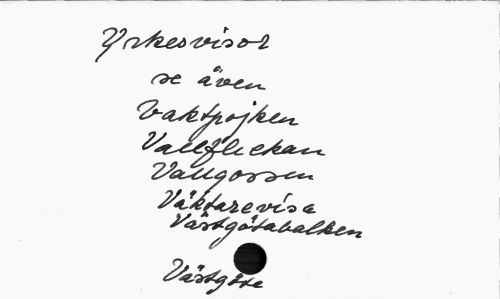 Yrkesvisor
se även
Vaktpojken
Vallflickan
Vallgossen
Väktarevisa
Västgötabalken
Västgöte